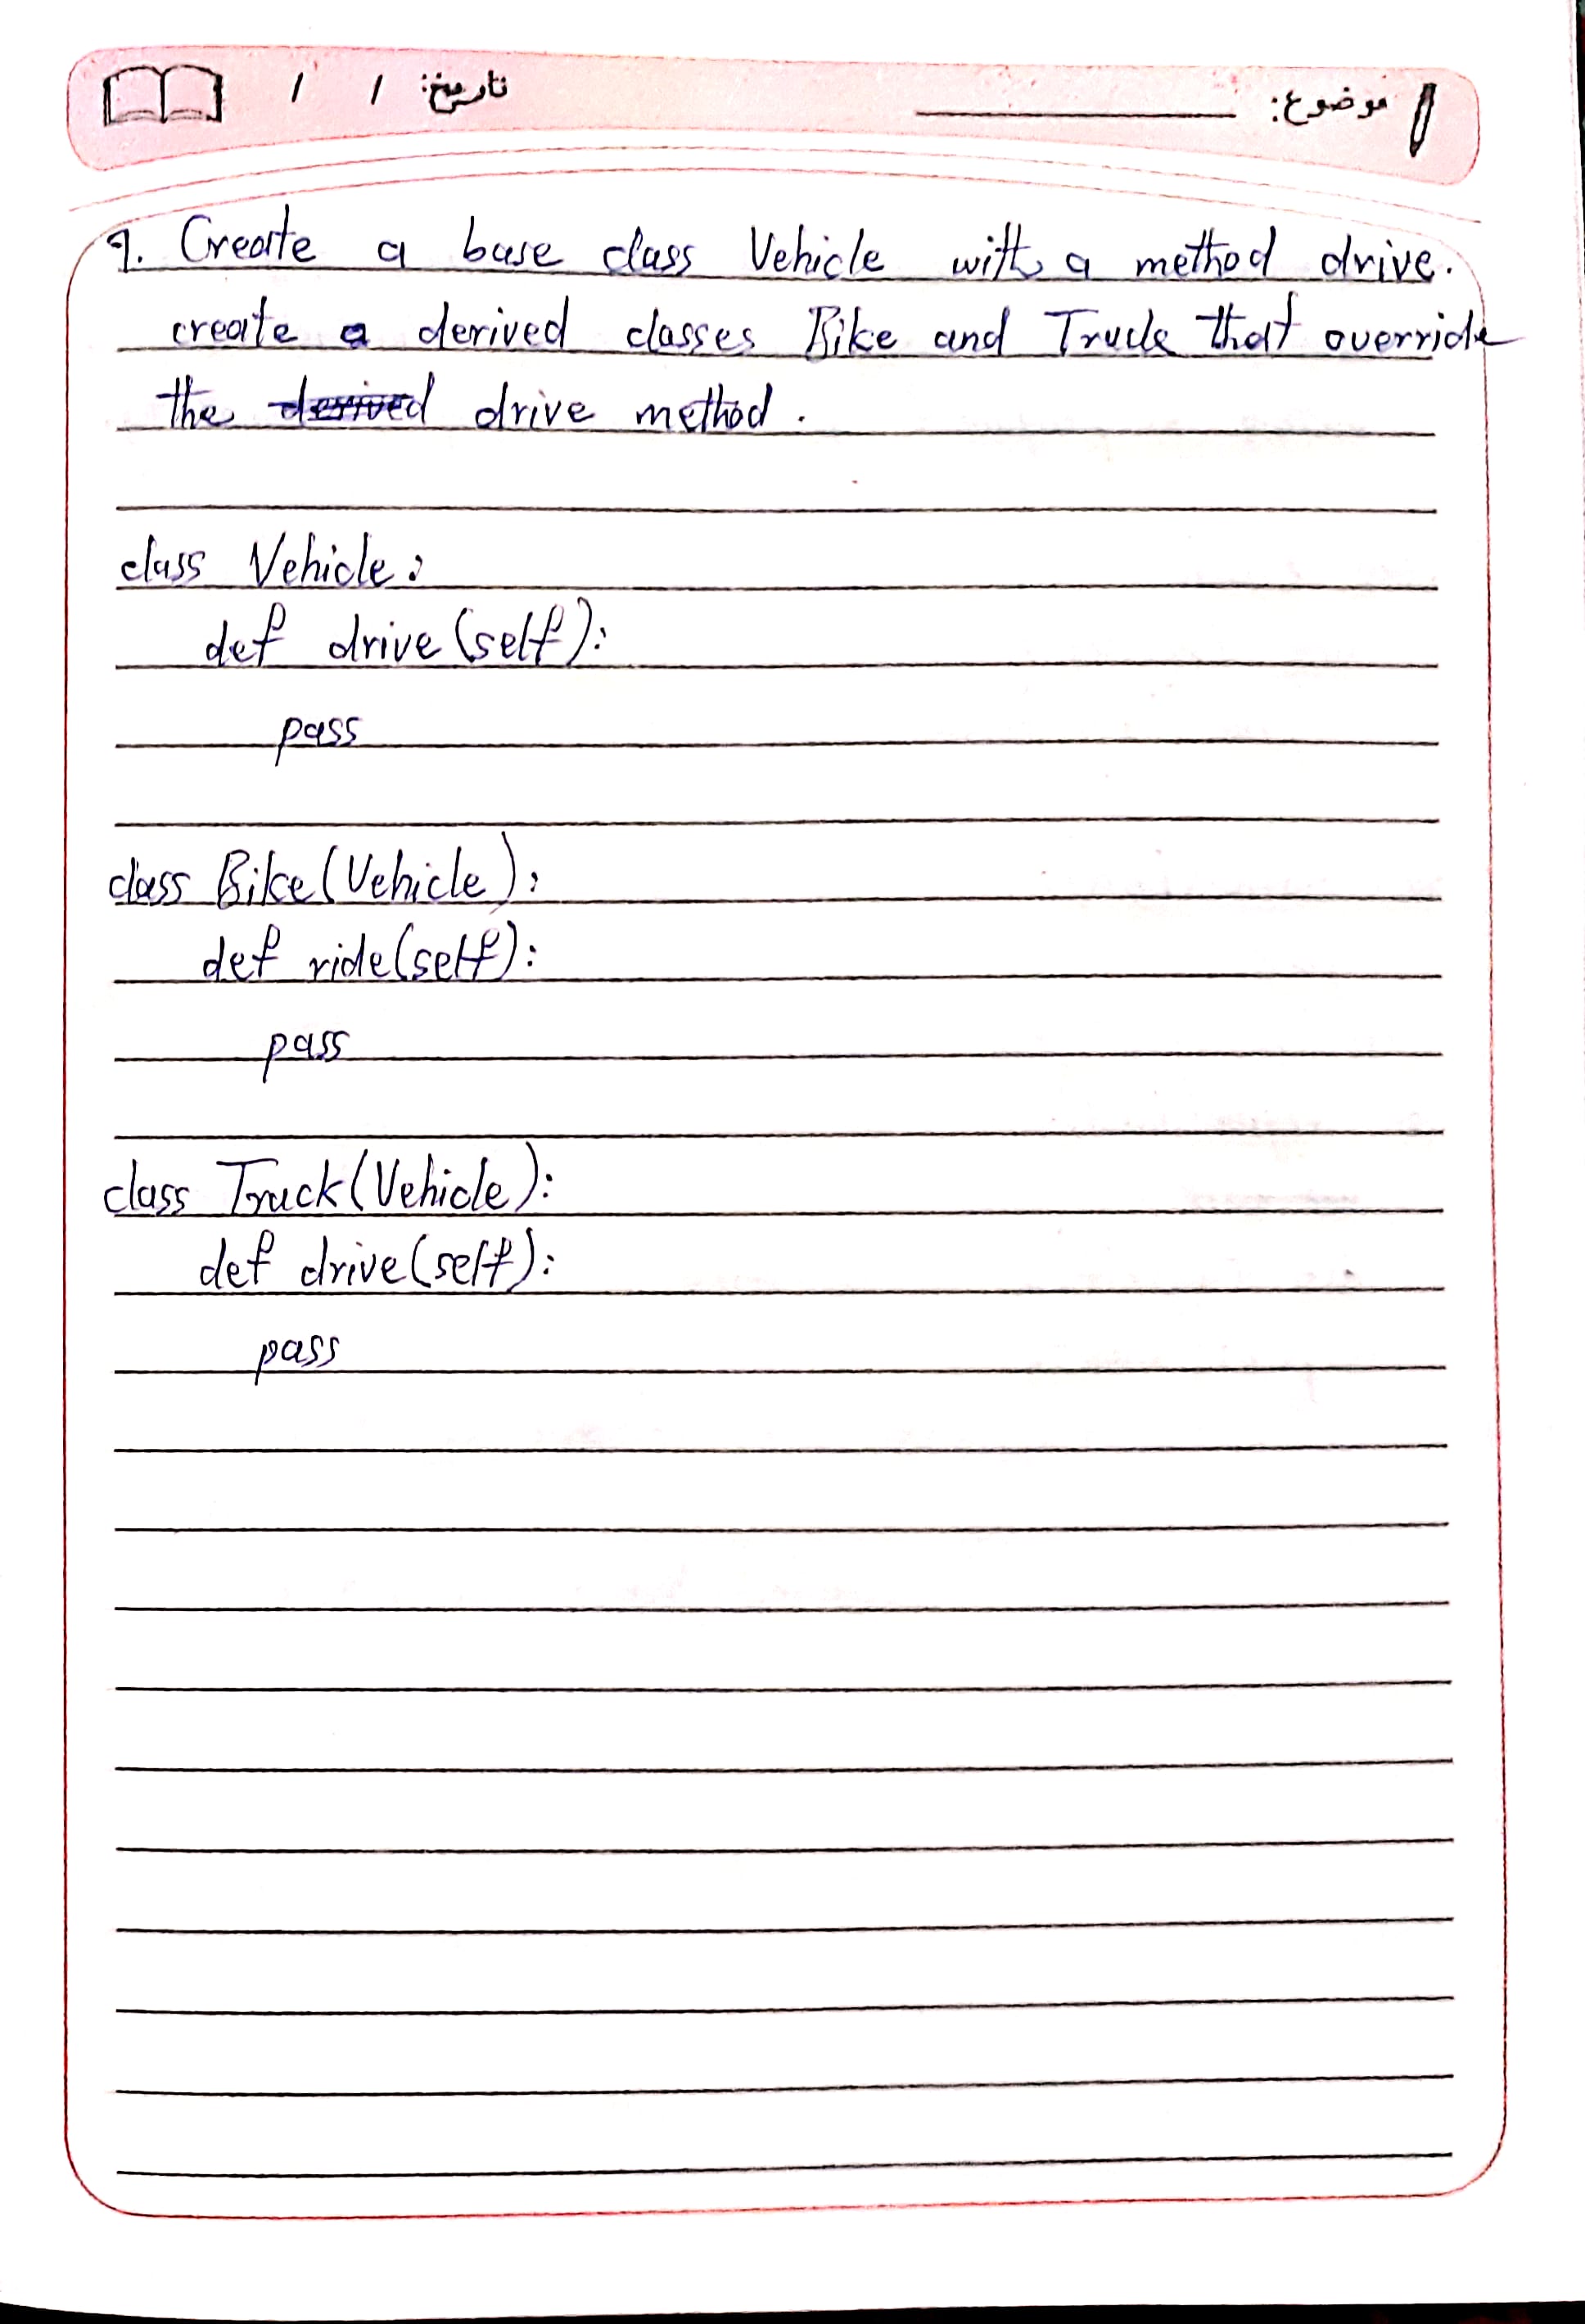 موضوع: تاریخ: / /
9. Create a base class Vehicle with a method drive.
create a derived classes Bike and Truck that override
the derived drive method.
class Vehicle:
def drive(self):
pass
class Bike(Vehicle):
def ride(self):
pass
class Truck(Vehicle):
def drive(self):
pass